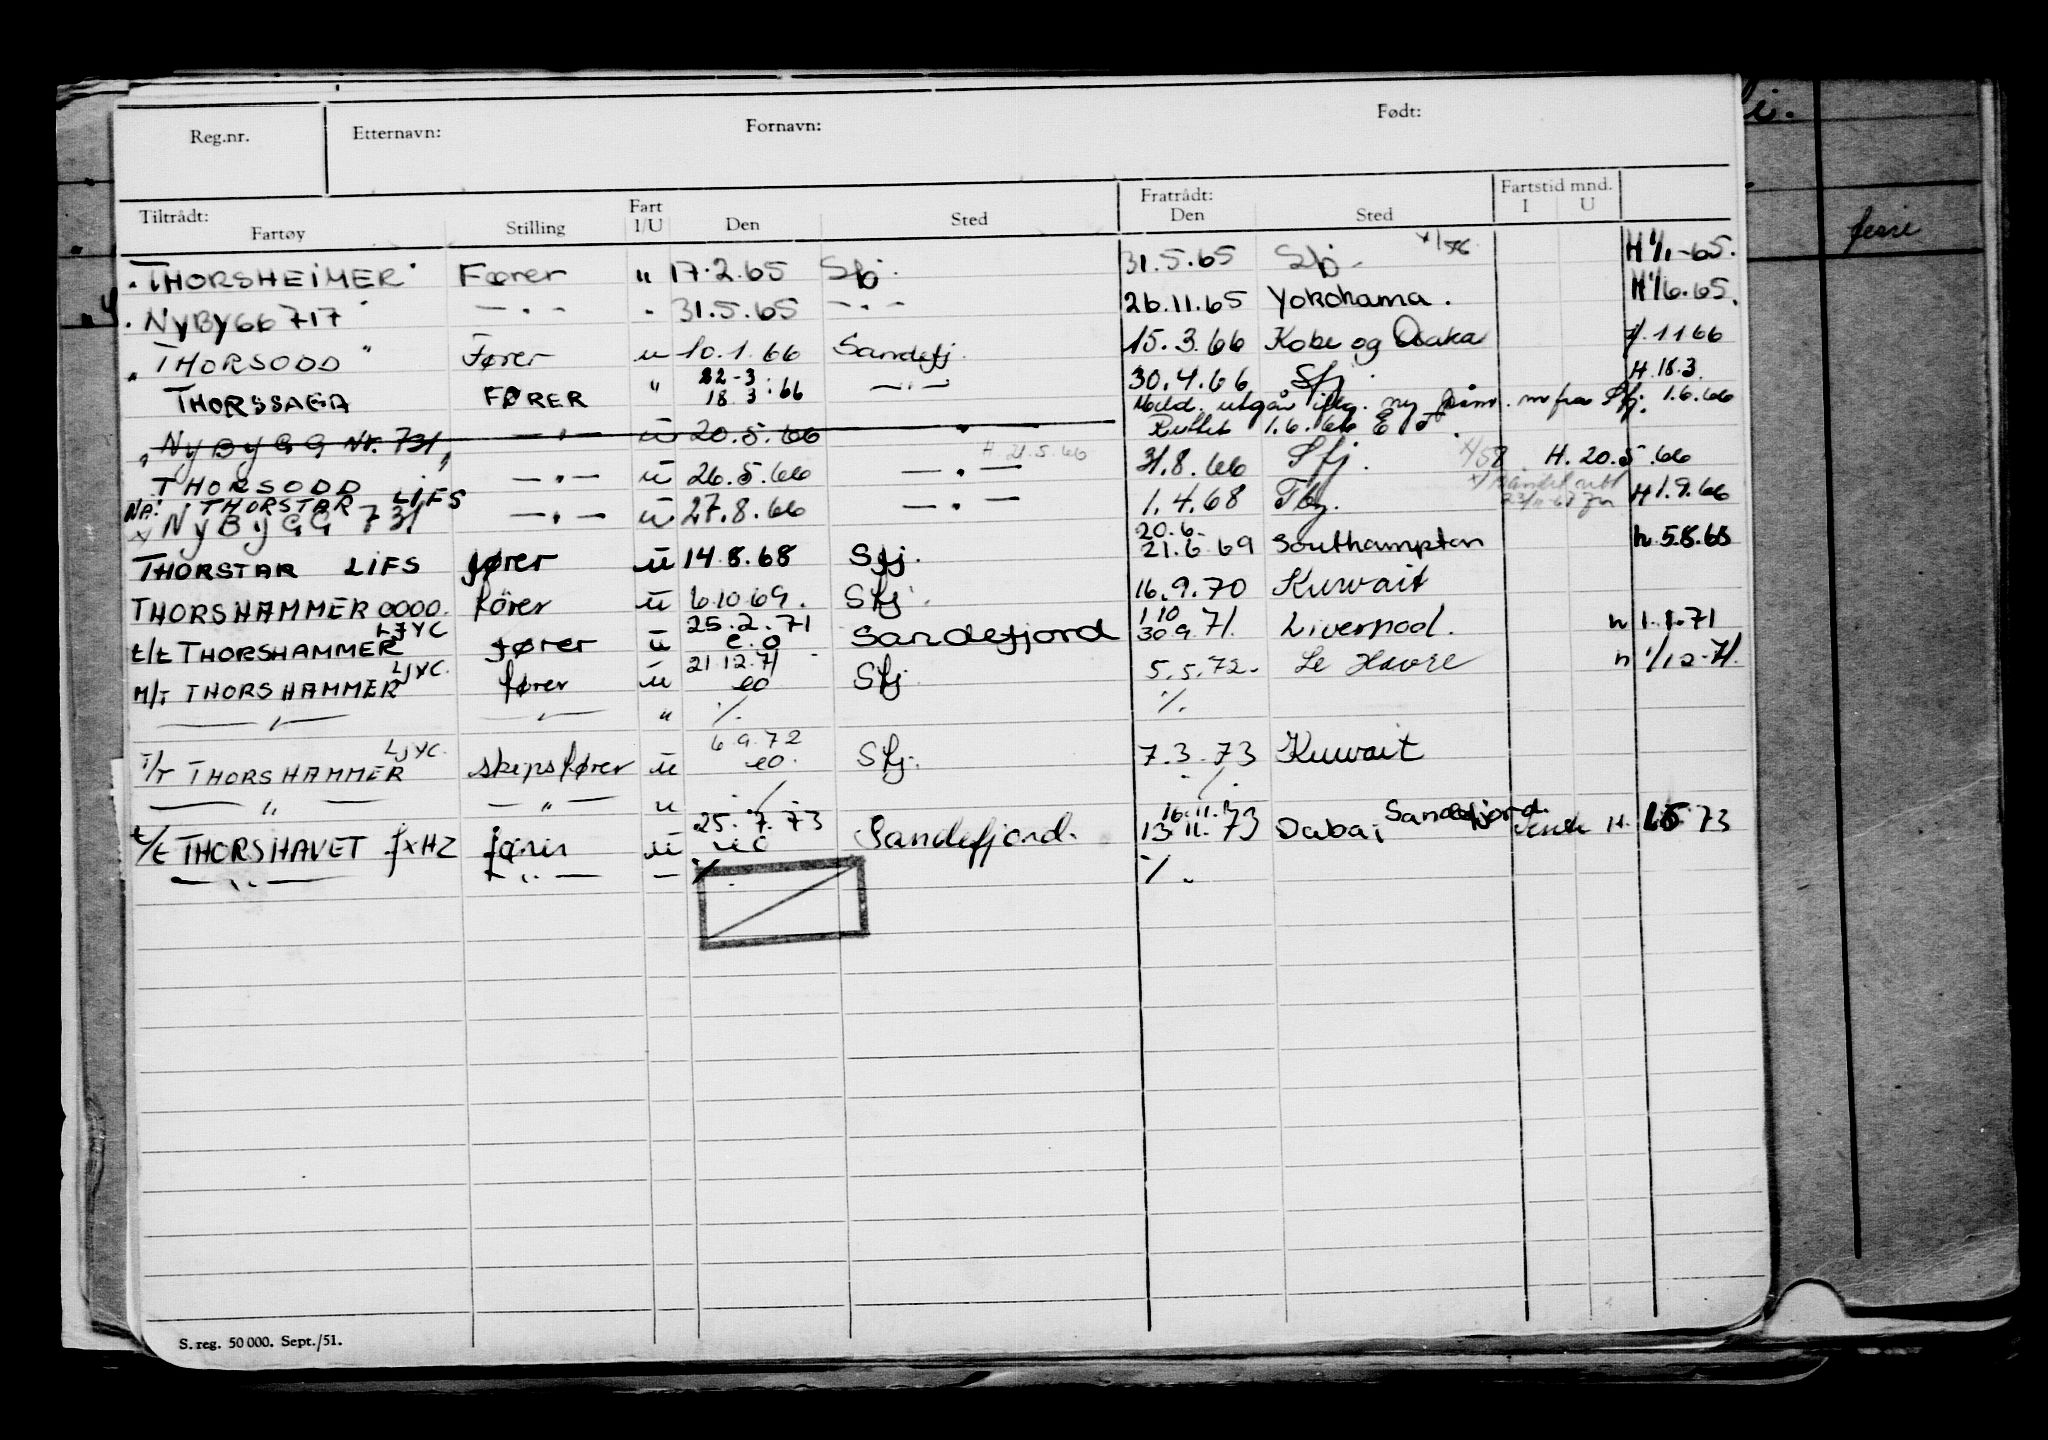 Reg.nr. Etternavn: Fornavn: Født:
Tiltrådt: Fratrådt: Fartstid mnd.
Fartøy Stilling Fart I/U Den Sted Den Sted I U
"THORSHEIMER" Fører " 17.2.65 Sfj. 31.5.65 Sfj. H 1/1-65.
"NYBYGG 717" — " — " 31.5.65 — " — 26.11.65 Yokohama. H 1/6.65.
"THORSODD" Fører u 10.1.66 Sandefj. 15.3.66 Kobe og Osaka H.1 1 66
THORSSAGA FØRER " 22-3 18 3:66 — " — 30.4.66 Sfj. H.18.3.
Meld. utgår iflg. ny m fra Sfj. 1.6.66
"NYBYGG Nr. 731" — " — u 20.5.66 — " — Rullet 1.6.66 E J
THORSODD — " — u 26.5.66 — " — H.21.5.66 31.8.66 Sfj. x/58 H.20.5.66
NA: THORSTAR LIFS
x/ NYBYGG 731 — " — u 27.8.66 — " — 1.4.68 Tbg. H 1.9.66
THORSTAR LIFS fører u 14.8.68 Sfj. 20.6. 21.6 69 Southampton h.5.8.68
THORSHAMMER OOOO. fører u 6.10 69. Sfj. 16.9.70 Kuwait
t/t THORSHAMMER LJYC fører u 25.2.71 e.o Sandefjord 1 10 30 9.71. Liverpool. h 1.1.71
M/T THORSHAMMER LJYC. fører u 21.12.71 eo Sfj 5.5.72. Le Havre h 1/12-71.
— " — — " — " ·/. ·/.
T/T THORSHAMMER LJYC. skipsfører u 6.9.72 eo. Sfj. 7.3.73 Kuwait
— " — — " — u ·/. ·/.
t/t THORSHAVET JXHZ fører u 25.7.73 eo Sandefjord. 16.11.73 13 11.73 Dubai Sandefjord. H. 73
— " — — " — — ·/. ·/.
S. reg. 50 000. Sept./51.
ferie